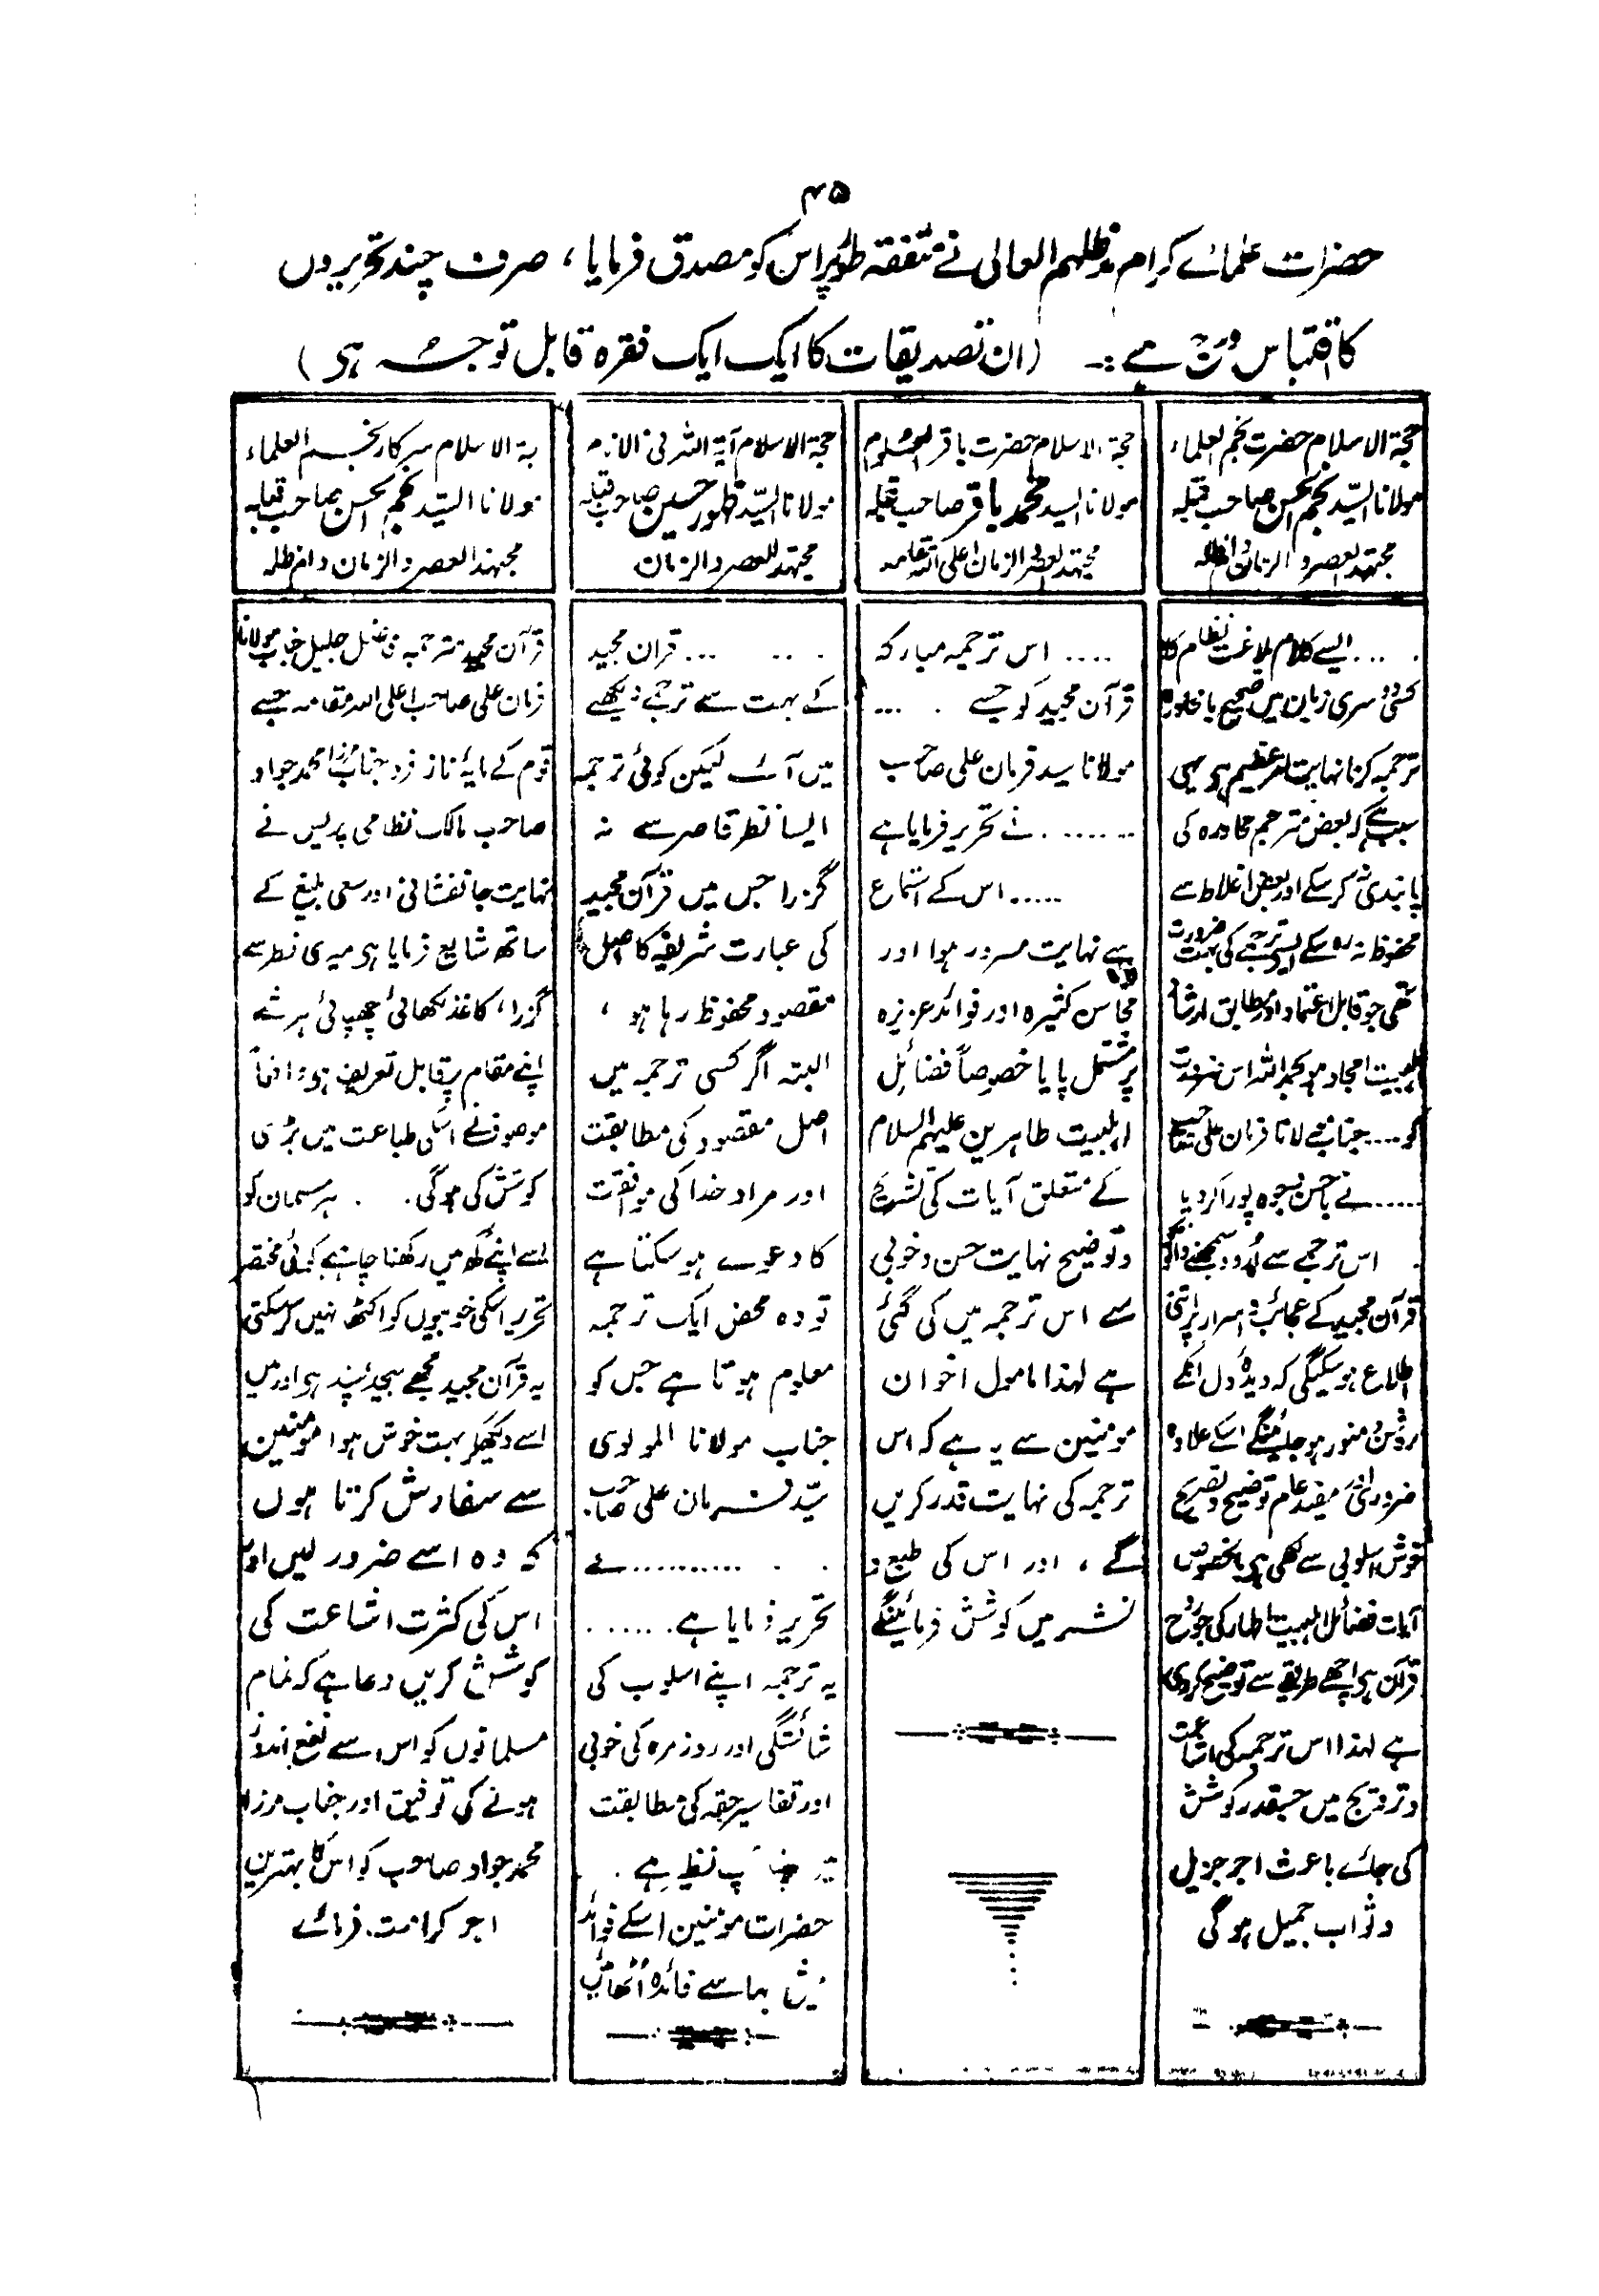 ۴۵
حضرات علمائے کرام مدظلہم العالی نے متفقہ طور پر اس کو مصدق فرمایا، صرف چند تحریروں
کا اقتباس درج ہے:۔ (ان تصدیقات کا ایک ایک فقرہ قابل توجہ ہی)
حجۃ الاسلام حضرت نجم العلماء
مولانا السید نجم الحسن صاحب قبلہ
مجتہد العصر والزمان دام ظلہ
. ... ایسے کلام بلاغت نظام کا
کسی دوسری زبان میں صحیح بامحاورہ
ترجمہ کرنا نہایت امر عظیم ہو یہی
سبب ہے کہ بعض مترجم محاورہ کی
پابندی نہ کر سکے اور بعض اغلاط سے
محفوظ نہ رہ سکے ایسے ترجمے کی بہت ضرورت
تھی جو قابل اعتماد اور مطابق ارشاد
اہلبیت امجاد ہو بحمد اللہ اس ضرورت
کو .... جناب مولانا فرمان علی صاحب
...... نے باحسن وجوہ پورا کر دیا
. اس ترجمے سے اُردو سمجھنے والونکو
قرآن مجید کے عجائب و اسرار پر اتنی
اطلاع ہو سکیگی کہ دیدۂ دل انکے
روشن منور ہو جائینگے اسکے علاوہ
ضروری اور مفید عام توضیح و تصریح
خوش اسلوبی سے لکھی ہی بالخصوص
آیات فضائل اہلبیت اطہار کی جو روح
قرآن ہی اچھے طریقے سے توضیح کر دی
ہے لہذا اس ترجمہ کی اشاعت
و ترویج میں جسقدر کوشش
کی جائے باعث اجر جزیل
و ثواب جمیل ہو گی
حجۃ الاسلام حضرت باقر العلوم
مولانا السید محمد باقر صاحب قبلہ
مجتہد العصر والزمان اعلی اللہ مقامہ
.... اس ترجمہ مبارکہ
قرآن مجید کو جسے . ...
مولانا سید فرمان علی صاحب
....... نے تحریر فرمایا ہے
..... اس کے استماع
سے نہایت مسرور ہوا اور
محاسن کثیرہ اور فوائد عزیزہ
پر مشتمل پایا خصوصاً فضائل
اہلبیت طاہرین علیہم السلام
کے متعلق آیات کی تشریح
و توضیح نہایت حسن و خوبی
سے اس ترجمہ میں کی گئی
ہے لہذا مامول اخوان
مومنین سے یہ ہے کہ اس
ترجمہ کی نہایت قدر کریں
گے، اور اس کی طبع و
نشر میں کوشش فرمائینگے
حجۃ الاسلام آیۃ اللہ فی الانام
مولانا السید ظہور حسین صاحب قبلہ
مجتہد العصر والزمان
. .. ... قران مجید
کے بہت سے ترجمے دیکھے
میں آئے لیکن کوئی ترجمہ
ایسا نظر قاصر سے نہ
گزرا جس میں قرآن مجید
کی عبارت شریفہ کا اصل
مقصود محفوظ رہا ہو،
البتہ اگر کسی ترجمہ میں
اصل مقصود کی مطابقت
اور مراد خدا کی موافقت
کا دعوے ہو سکتا ہے
تو وہ محض ایک ترجمہ
معلوم ہوتا ہے جس کو
جناب مولانا المولوی
سید فرمان علی صاحب
. . .......... نے
تحریر فرمایا ہے ......
یہ ترجمہ اپنے اسلوب کی
شائستگی اور روزمرہ کی خوبی
اور تفاسیر حقہ کی مطابقت
نظیر ہے .
حضرات مؤمنین اسکے فوائد
بیش بہا سے فائدہ اُٹھائیں
سرکار نجم العلماء الاسلام
مولانا السید نجم الحسن صاحب قبلہ
مجتہد العصر والزمان دام ظلہ
قرآن مجید مترجمہ فاضل جلیل جناب مولانا
فرمان علی صاحب اعلی اللہ مقامہ جسے
قوم کے مایۂ ناز فرد جناب مرزا محمد جواد
صاحب مالک نظامی پریس نے
نہایت جانفشانی اور سعی بلیغ کے
ساتھ شایع فرمایا ہی میری نظر سے
گزرا، کاغذ لکھائی چھپائی ہر شے
اپنے مقام پر قابل تعریف ہی واقعاً
موصوف نے اسکی طباعت میں بڑی
کوشش کی ہو گی. . ہر مسلمان کو
اسے اپنے گھر میں رکھنا چاہئے کوئی مختصر
تحریر اسکی خوبیوں کو اکٹھا نہیں کر سکتی
یہ قرآن مجید مجھے بیحد پسند ہی اور میں
اسے دیکھکر بہت خوش ہوا مومنین
سے سفارش کرتا ہوں
کہ وہ اسے ضرور لیں اور
اس کی کثرت اشاعت کی
کوشش کریں دعا ہے کہ تمام
مسلمانوں کو اس سے نفع اندوز
ہونے کی توفیق اور جناب مرزا
محمد جواد صاحب کو اس کا بہترین
اجر کرامت فرمائے